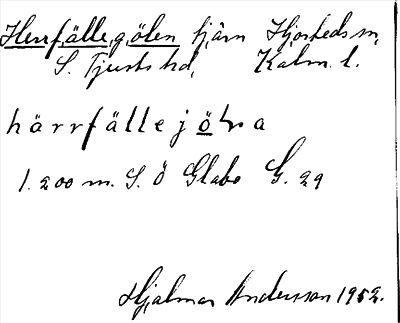 Herrfällegölen tjärn Hjorteds sn,
S. Tjusts hd, Kalm. l.
härrfällejölna
1.200 m. S. Ö Glabo G. 29
Hjalmar Andersson 1952.